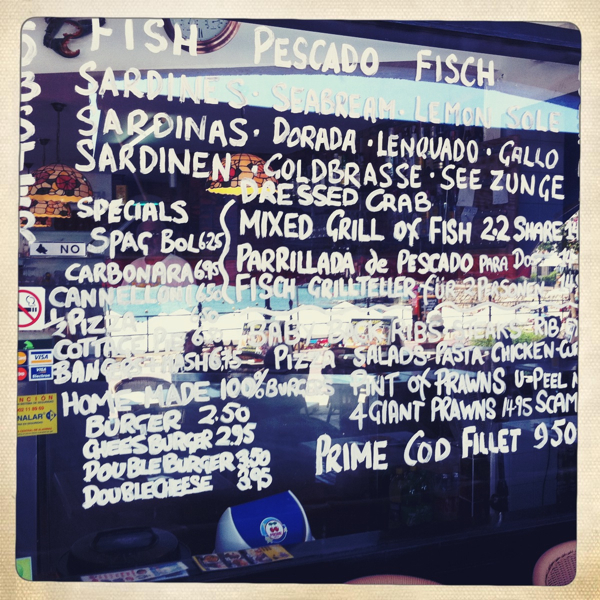 FISH PESCADO FISCH
SARDINES · SEABREAM · LEMON SOLE
SARDINAS · DORADA · LENQUADO · GALLO
SARDINEN · GOLDBRASSE · SEE ZUNGE
DRESSED CRAB
MIXED GRILL OF FISH 2.2 SHARE
PARRILLADA de PESCADO PARA DOS
FISCH GRILLTELLER FÜR 2 PERSONEN
SPECIALS
SPAG BOL 6.25
CARBONARA 6.95
CANNELLONI 6.50
PIZZA
COTTAGE PIE
BABY BACK RIBS · STEAKS · RIB
PIZZA SALADS · PASTA · CHICKEN
HOME MADE 100% BURGERS
BURGER 2.50
CHEESBURGER 2.95
DOUBLE BURGER 3.50
DOUBLECHEESE 3.95
PINT OF PRAWNS U-PEEL
4 GIANT PRAWNS 14.95 SCAM
PRIME COD FILLET 9.50
NO
VISA
VISA